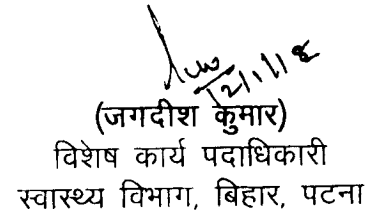 (जगदीश कुमार)
विशेष कार्य पदाधिकारी
स्वास्थ्य विभाग, बिहार, पटना